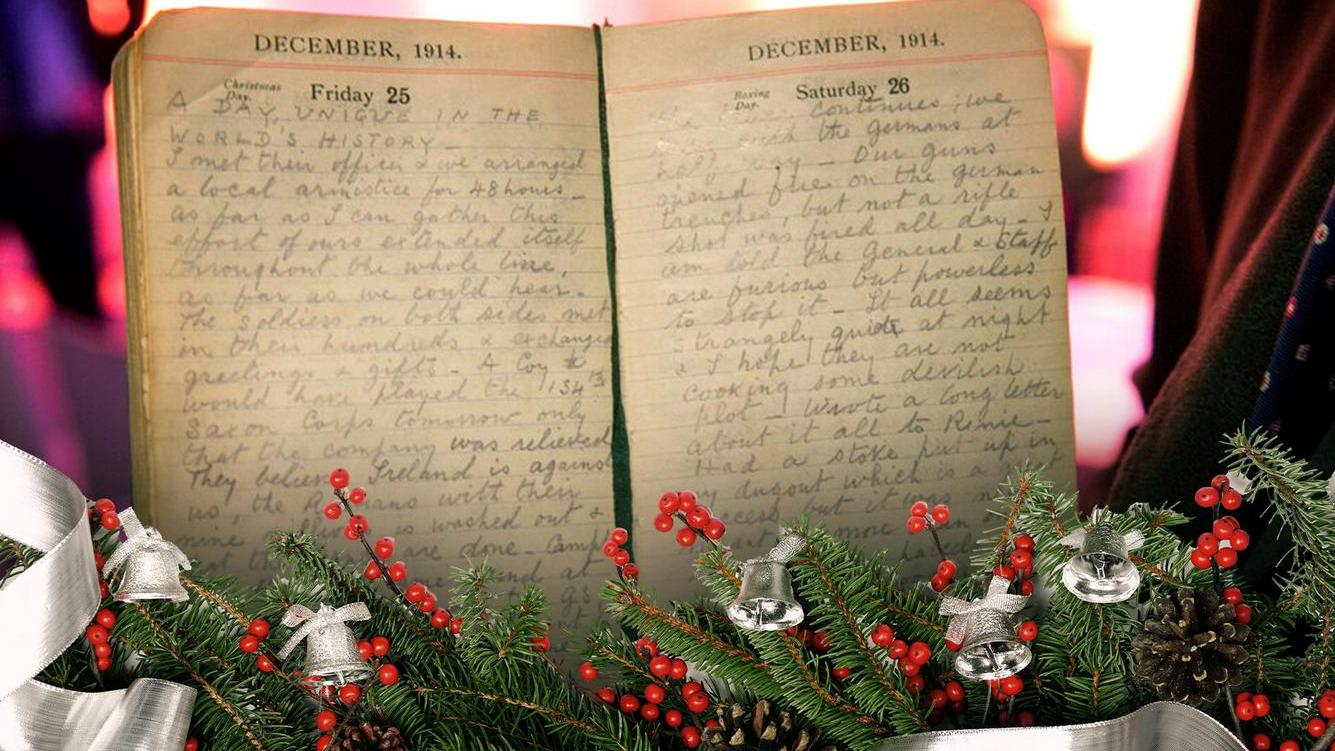 DECEMBER, 1914.
Christmas Day. Friday 25
A DAY, UNIQUE IN THE
WORLD'S HISTORY —
I met their officer & we arranged
a local armistice for 48 hours. —
As far as I can gather this
effort of ours extended itself
throughout the whole line,
as far as we could hear. —
The soldiers on both sides met
in their hundreds & exchanged
greetings & gifts. — A Coy
would have played the 134th
Saxon Corps tomorrow only
that the company was relieved
They believe Ireland is against
us, the with their
is washed out &
are done
at
DECEMBER, 1914.
Boxing Day. Saturday 26
continues; we
the germans at
— Our guns
opened fire on the german
trenches, but not a rifle
shot was fired all day — I
am told the General & Staff
are furious but powerless
to stop it — It all seems
strangely quiet at night
& I hope they are not
cooking some devilish
plot — Wrote a long letter
about it all to Renie —
Had a stoke put up in
my dugout which is a
but it was
more